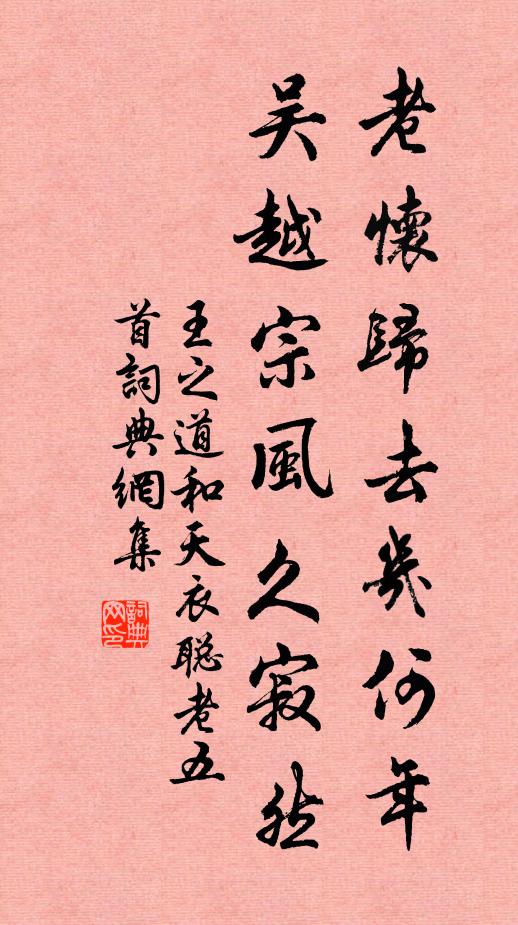 老懷歸去幾何年
吴越宗風久寂然
王之道和天衣聡老五
首詞典網集
詞典
网印